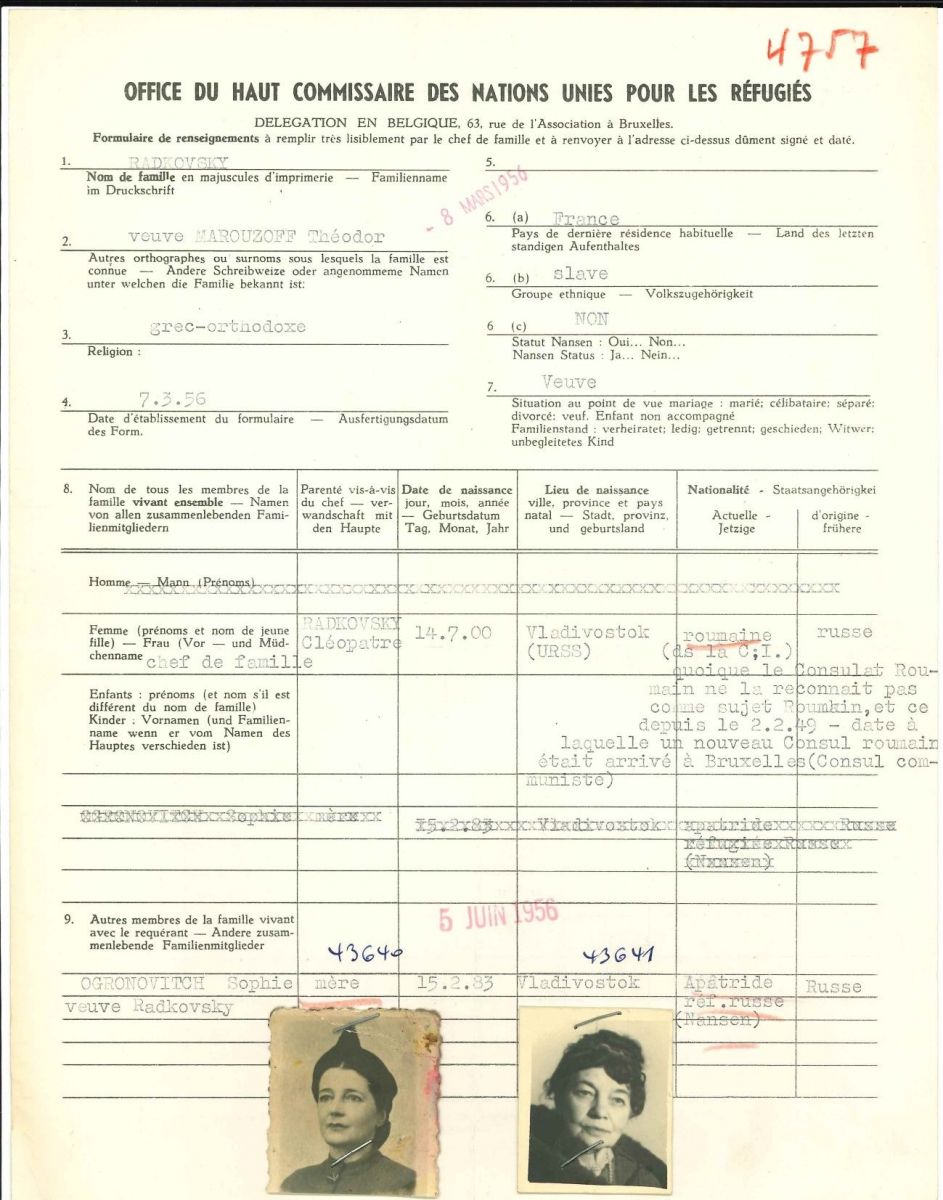 4757
OFFICE DU HAUT COMMISSAIRE DES NATIONS UNIES POUR LES RÉFUGIÉS
DELEGATION EN BELGIQUE, 63, rue de l'Association à Bruxelles.
Formulaire de renseignements à remplir très lisiblement par le chef de famille et à renvoyer à l'adresse ci-dessus dûment signé et daté.
1. RADKOVSKY
Nom de famille en majuscules d'imprimerie — Familienname
im Druckschrift
- 8 MARS 1956
2. veuve MAROUZOFF Théodor
Autres orthographes ou surnoms sous lesquels la famille est
connue — Andere Schreibweize oder angenommeme Namen
unter welchen die Familie bekannt ist:
3. grec-orthodoxe
Religion :
4. 7.3.56
Date d'établissement du formulaire — Ausfertigungsdatum
des Form.
5.
6. (a) France
Pays de dernière résidence habituelle — Land des letzten
standigen Aufenthaltes
6. (b) slave
Groupe ethnique — Volkszugehörigkeit
6 (c) NON
Statut Nansen : Oui... Non...
Nansen Status : Ja... Nein...
7. Veuve
Situation au point de vue mariage : marié; célibataire; séparé;
divorcé; veuf. Enfant non accompagné
Familienstand : verheiratet; ledig; getrennt; geschieden; Witwer;
unbegleitetes Kind
8. Nom de tous les membres de la
famille vivant ensemble — Namen
von allen zusammenlebenden Fami-
lienmitgliedern
Parenté vis-à-vis
du chef — ver-
wandschaft mit
den Haupte
Date de naissance
jour, mois, année
— Geburtsdatum
Tag, Monat, Jahr
Lieu de naissance
ville, province et pays
natal — Stadt, provinz,
und geburtsland
Nationalité - Staatsangehörigkei
Actuelle -
Jetzige
d'origine -
frühere
Homme — Mann (Prénoms)
Femme (prénoms et nom de jeune
fille) — Frau (Vor — und Müd-
chenname chef de famille
RADKOVSKY
Cléopatre
14.7.00
Vladivostok
(URSS)
roumaine
(ds la C;I.)
russe
quoique le Consulat Rou-
main ne la reconnait pas
comme sujet Roumkin,et ce
depuis le 2.2.49 - date à
laquelle un nouveau Consul roumain
était arrivé à Bruxelles(Consul com-
muniste)
Enfants : prénoms (et nom s'il est
différent du nom de famille)
Kinder : Vornamen (und Familien-
name wenn er vom Namen des
Hauptes verschieden ist)
OGRONOVITCH Sophie mère 15.2.83 Vladivostok apatride Russe
réfugiée Russe
(Nansen)
9. Autres membres de la famille vivant
avec le requérant — Andere zusam-
menlebende Familienmitglieder
5 JUIN 1956
43640 43641
OGRONOVITCH Sophie mère 15.2.83 Vladivostok Apatride Russe
veuve Radkovsky réf.russe
(Nansen)